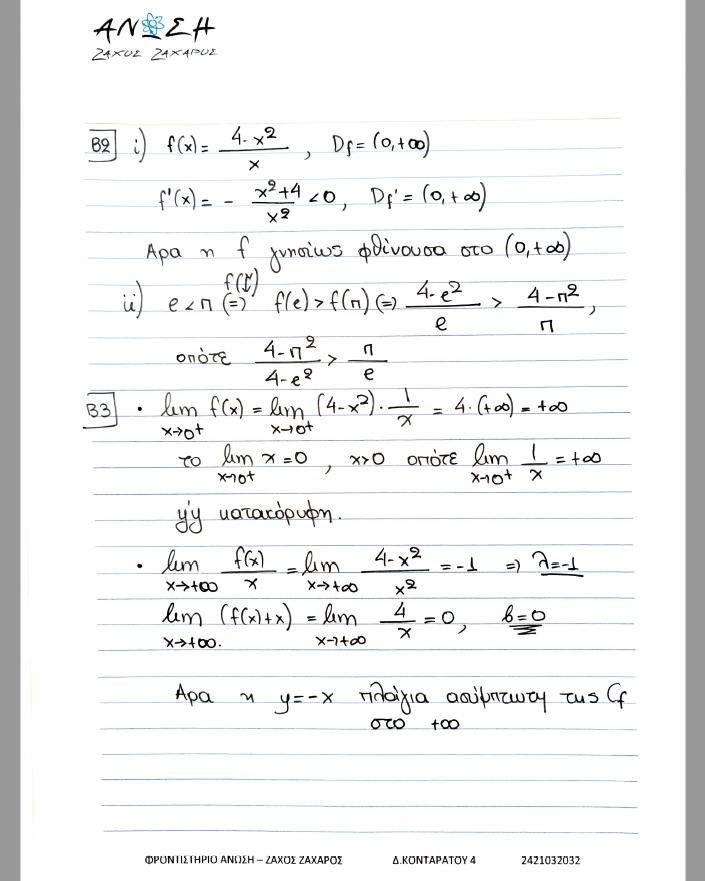 ΑΝΩΣΗ
ΖΑΧΟΣ ΖΑΧΑΡΟΣ
B2 i) f(x) = (4-x²)/x , Df = (0,+∞)
f'(x) = - (x²+4)/x² < 0, Df' = (0,+∞)
Άρα η f γνησίως φθίνουσα στο (0,+∞)
f(↓)
ii) e < π (=) f(e) > f(π) (=) (4-e²)/e > (4-π²)/π ,
οπότε (4-π²)/(4-e²) > π/e
B3 • lim x→0⁺ f(x) = lim x→0⁺ (4-x²)·1/x = 4·(+∞) = +∞
το lim x→0⁺ x = 0 , x>0 οπότε lim x→0⁺ 1/x = +∞
y'y κατακόρυφη.
• lim x→+∞ f(x)/x = lim x→+∞ (4-x²)/x² = -1 => λ=-1
lim x→+∞. (f(x)+x) = lim x→+∞ 4/x = 0, β=0
Άρα η y=-x πλάγια ασύμπτωτη της Cf
στο +∞
ΦΡΟΝΤΙΣΤΗΡΙΟ ΑΝΩΣΗ – ΖΑΧΟΣ ΖΑΧΑΡΟΣ Δ.ΚΟΝΤΑΡΑΤΟΥ 4 2421032032